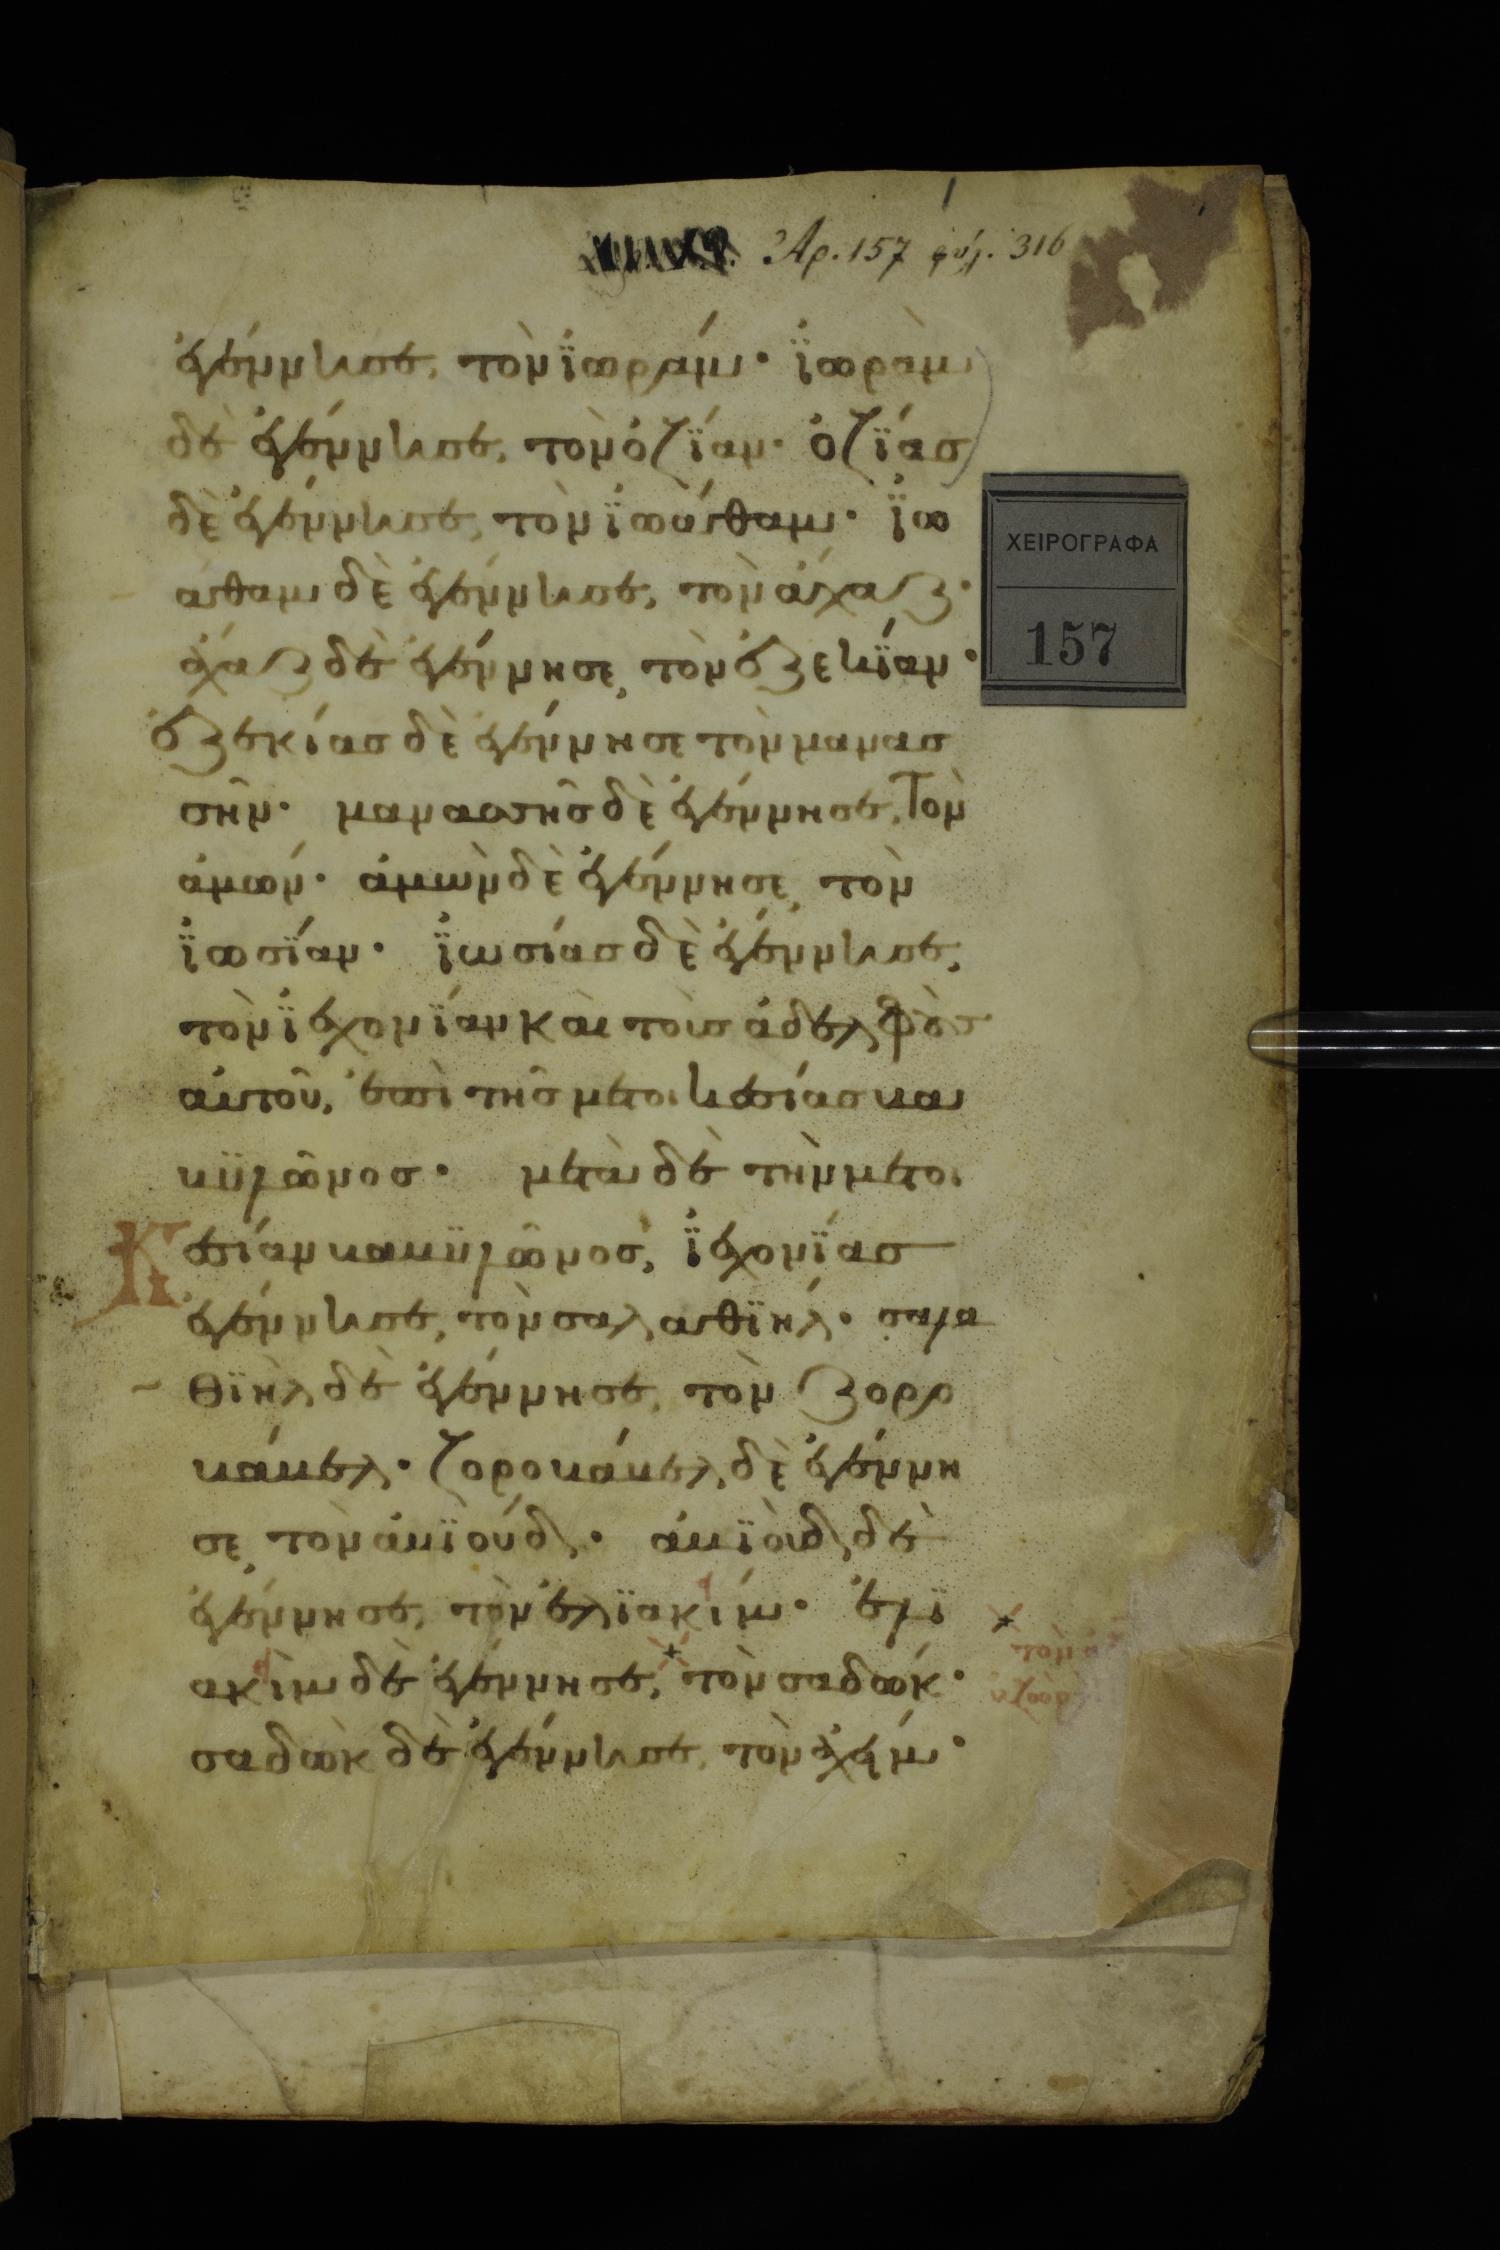 Ἀρ. 157 φύλ. 316
ἐγέννησε, τὸν ϊωράμ· ϊωρὰμ
δὲ ἐγέννησε, τὸν ὀζΐαν· ὀζΐας
δὲ ἐγέννησε, τὸν ϊωάθαμ· ϊω
άθαμ δὲ ἐγέννησε, τὸν ἄχαζ·
ἄχαζ δὲ ἐγέννησε, τὸν ἐζεκΐαν·
ἐζεκίας δὲ ἐγέννησε τὸν μανασ
σῆν· μανασσῆς δὲ ἐγέννησε, τὸν
ἀμών· ἀμὼν δὲ ἐγέννησε, τὸν
ϊωσΐαν· ϊωσίας δὲ ἐγέννησε,
τὸν ϊεχονΐαν καὶ τοὺς ἀδελφοὺς
αὐτοῦ, ἐπὶ τῆς μετοικεσίας βα
βϋλῶνος· μετὰ δὲ τὴν μετοι
κεσίαν βαβϋλῶνος, ϊεχονΐας
ἐγέννησε, τὸν σαλαθϊήλ· σαλα
θϊὴλ δὲ ἐγέννησε, τὸν ζορο
βάβελ· ζοροβάβελ δὲ ἐγέννη
σε, τὸν ἀβϊούδ· ἀβϊοὺδ δὲ
ἐγέννησε, τὸν ἐλϊακίμ· ἐλϊ
ακὶμ δὲ ἐγέννησε, τὸν σαδώκ·
σαδὼκ δὲ ἐγέννησε, τὸν ἀχήμ·
τὸν
ΧΕΙΡΟΓΡΑΦΑ
157